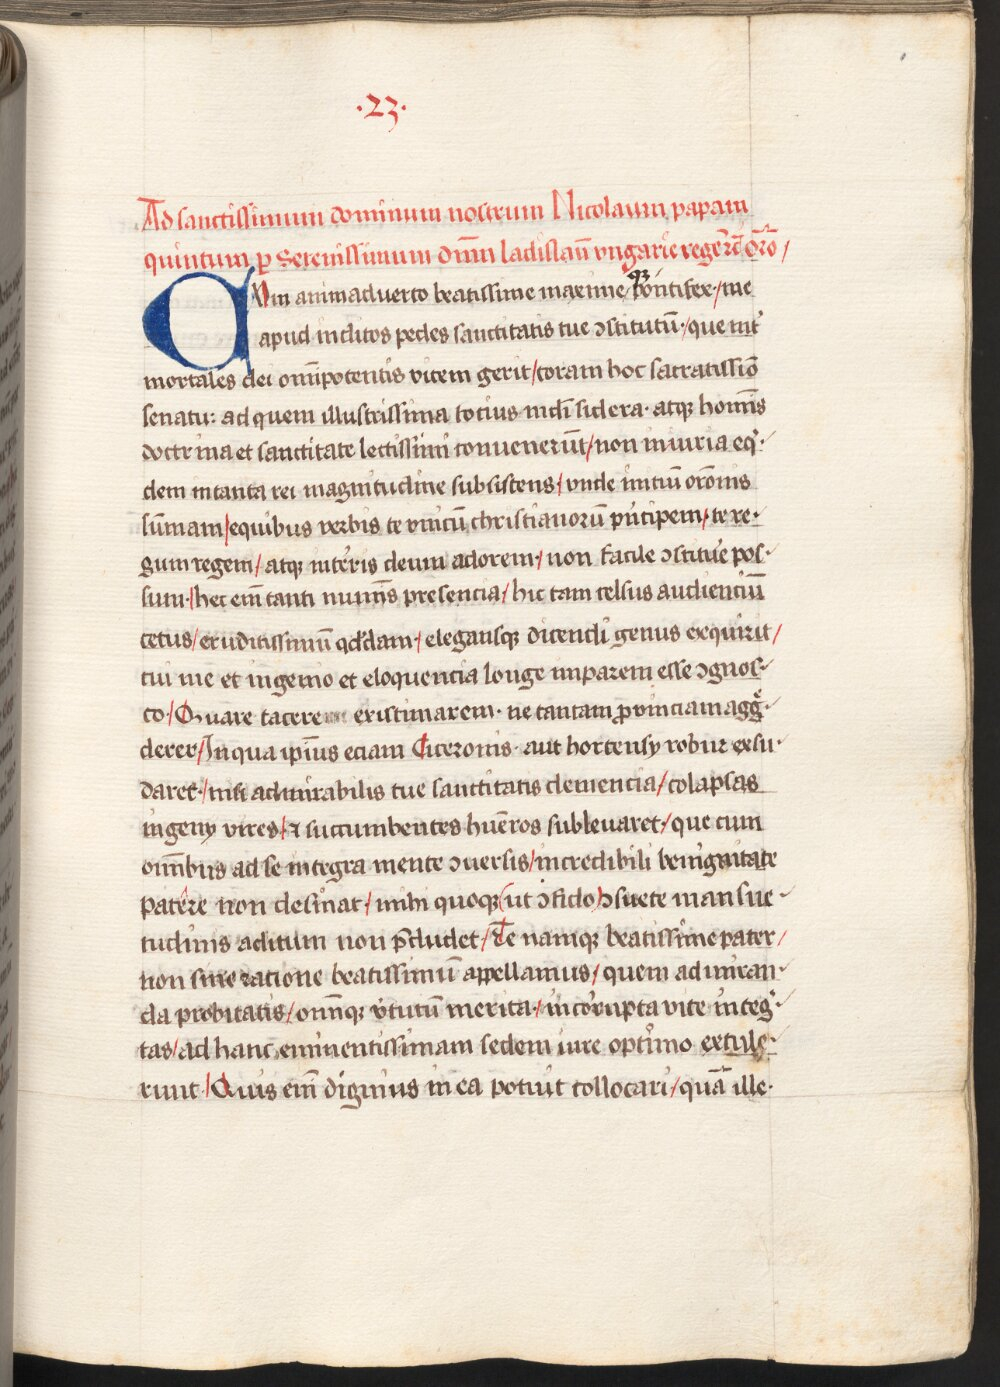 ·23·
Ad sanctissimum dominum nostrum Nicolaum, papam
quintum ꝑ Serenissimum dn̄m ladislau͞ vngarie regē
CVm animaduerto beatissime maxime, pontifex / me
apud inclitos pedes sanctitatis tue ꝯstitutū / que int̄
mortales dei om̄ipotentis vicem gerit / coram hoc sacratissiō
senatu: ad quem illustrissima tocius mūdi sidera · atqꝫ hominis
doctrina et sanctitate lectissimi conuenerūt / non iniuria eq̄·
dem in tanta rei magnitudine subsistens / vnde initiū orōnis
sūmam / equibus verbis te vnicū christianorū pn̄cipem / te re·
gum regem / atqꝫ in terris deum adorem · non facile ꝯstitue͛ pos·
sum · / hec em̄ tanti numīs presencia / hic tam celsus audienciū
cetus / eruditissimū qd̄dam · elegansqꝫ dicendi genus exquirit /
cui me et ingenio et eloquencia longe imparem esse ꝯgnos·
co · / Quare tacere existimarem · ne tantam ꝓvinciam agg̾·
derer / In qua ip̄ius eciam Ciceronis · aut hortensy robur exsu·
daret · / nisi admirabilis tue sanctitatis clemencia / colapsas
ingeny vires / ⁊ succumbentes hūeros subleuaret / que cum
om̄ibus ad se integra mente ꝯuersis / incredibili benignitate
patēre non desinat / mihi quoqꝫ (ut ꝯfido) ꝯsuete mansue·
tudinis aditum non p̄cludet / Te namqꝫ beatissime pater /
non sine ratione beatissimū appellamus / quem admiran·
da probitatis / om̄iqꝫ v̾tutū merita · / incorrupta vite integ̾·
tas / ad hanc eminentissimam sedem iure optimo extule·
runt · / Quis em̄ dignius in ea potiut collocari / quā ille·